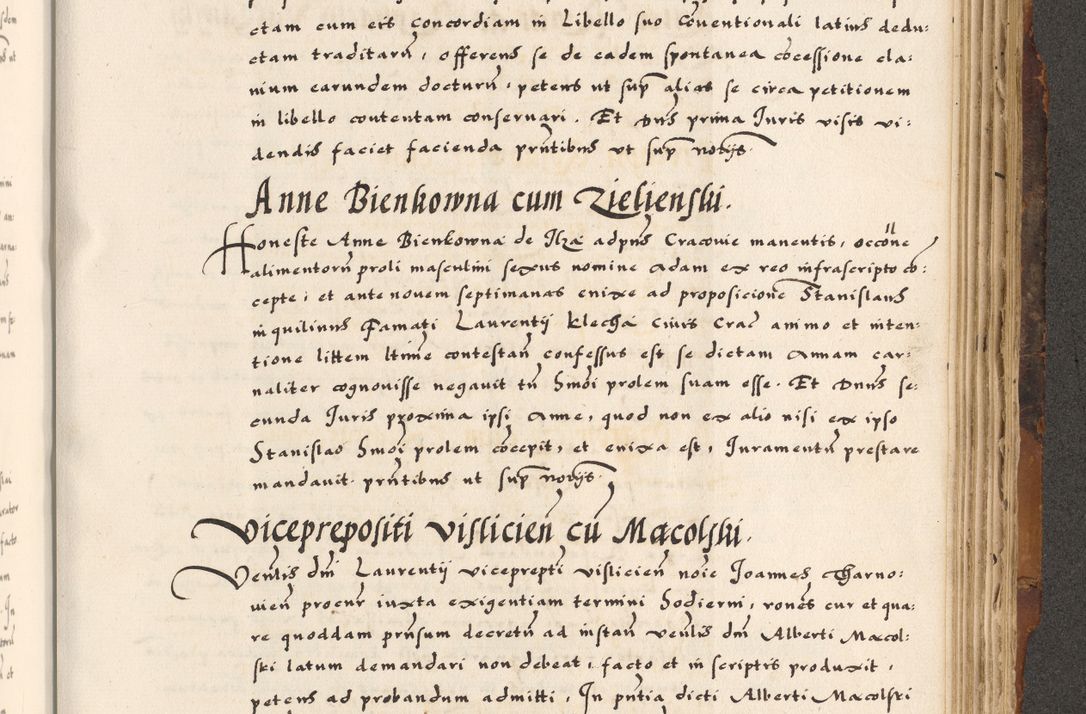 ctam cum eis concordiam in Libello suo cōventionali latius dedu:
ctam traditarū, offerens se de eadem spontanea cōcessione cla:
nium earundem docturū, petens ut sup̄ alias se circa petitionem
in libello contentam conservari. Et Dn̄s prima Juris visis vi:
dendis faciet facienda prn̄tibus ut sup̄ nobis.
Anne Bienkowna cum Zielienski.
Honeste Anne Bienkowna de Ilza adpn̄s Cracovie manentis, occōne
alimentorū proli masculini sexus nomine Adam ex reo infrascripto cō:
cepte, et ante novem septimanas enixe ad proposicione Stanislaus
inquilinus Famati Laurentij Klecha civis Crac animo et inten:
tione littem ltīme contestan̄ confessus est se dictam Annam car:
naliter cognovisse negavit tn̄ hmōi prolem suam esse. Et Dnn̄s se:
cunda Juris proxima ipsi Anne, quod non ex alio nisi ex ipso
Stanislao hmōi prolem cōcepit, et enixa est, Juramentū prestare
mandavit. prn̄tibus ut sup̄ nobis.
Viceprepositi Vislicien̄ cū Macolski.
Ven̄lis dn̄i Laurentij viceprepti vislicien̄ noīe Joannes Tharno:
vien̄ procur iuxta exigentiam termini hodierni, rones cur et qua:
re quoddam prn̄sum decretū ad instan̄ ven̄lis dn̄i Alberti Macol:
ski latum demandari non debeat, facto et in scriptis produxit,
petens ad probandum admitti, In pn̄tia dicti Alberti Macolski